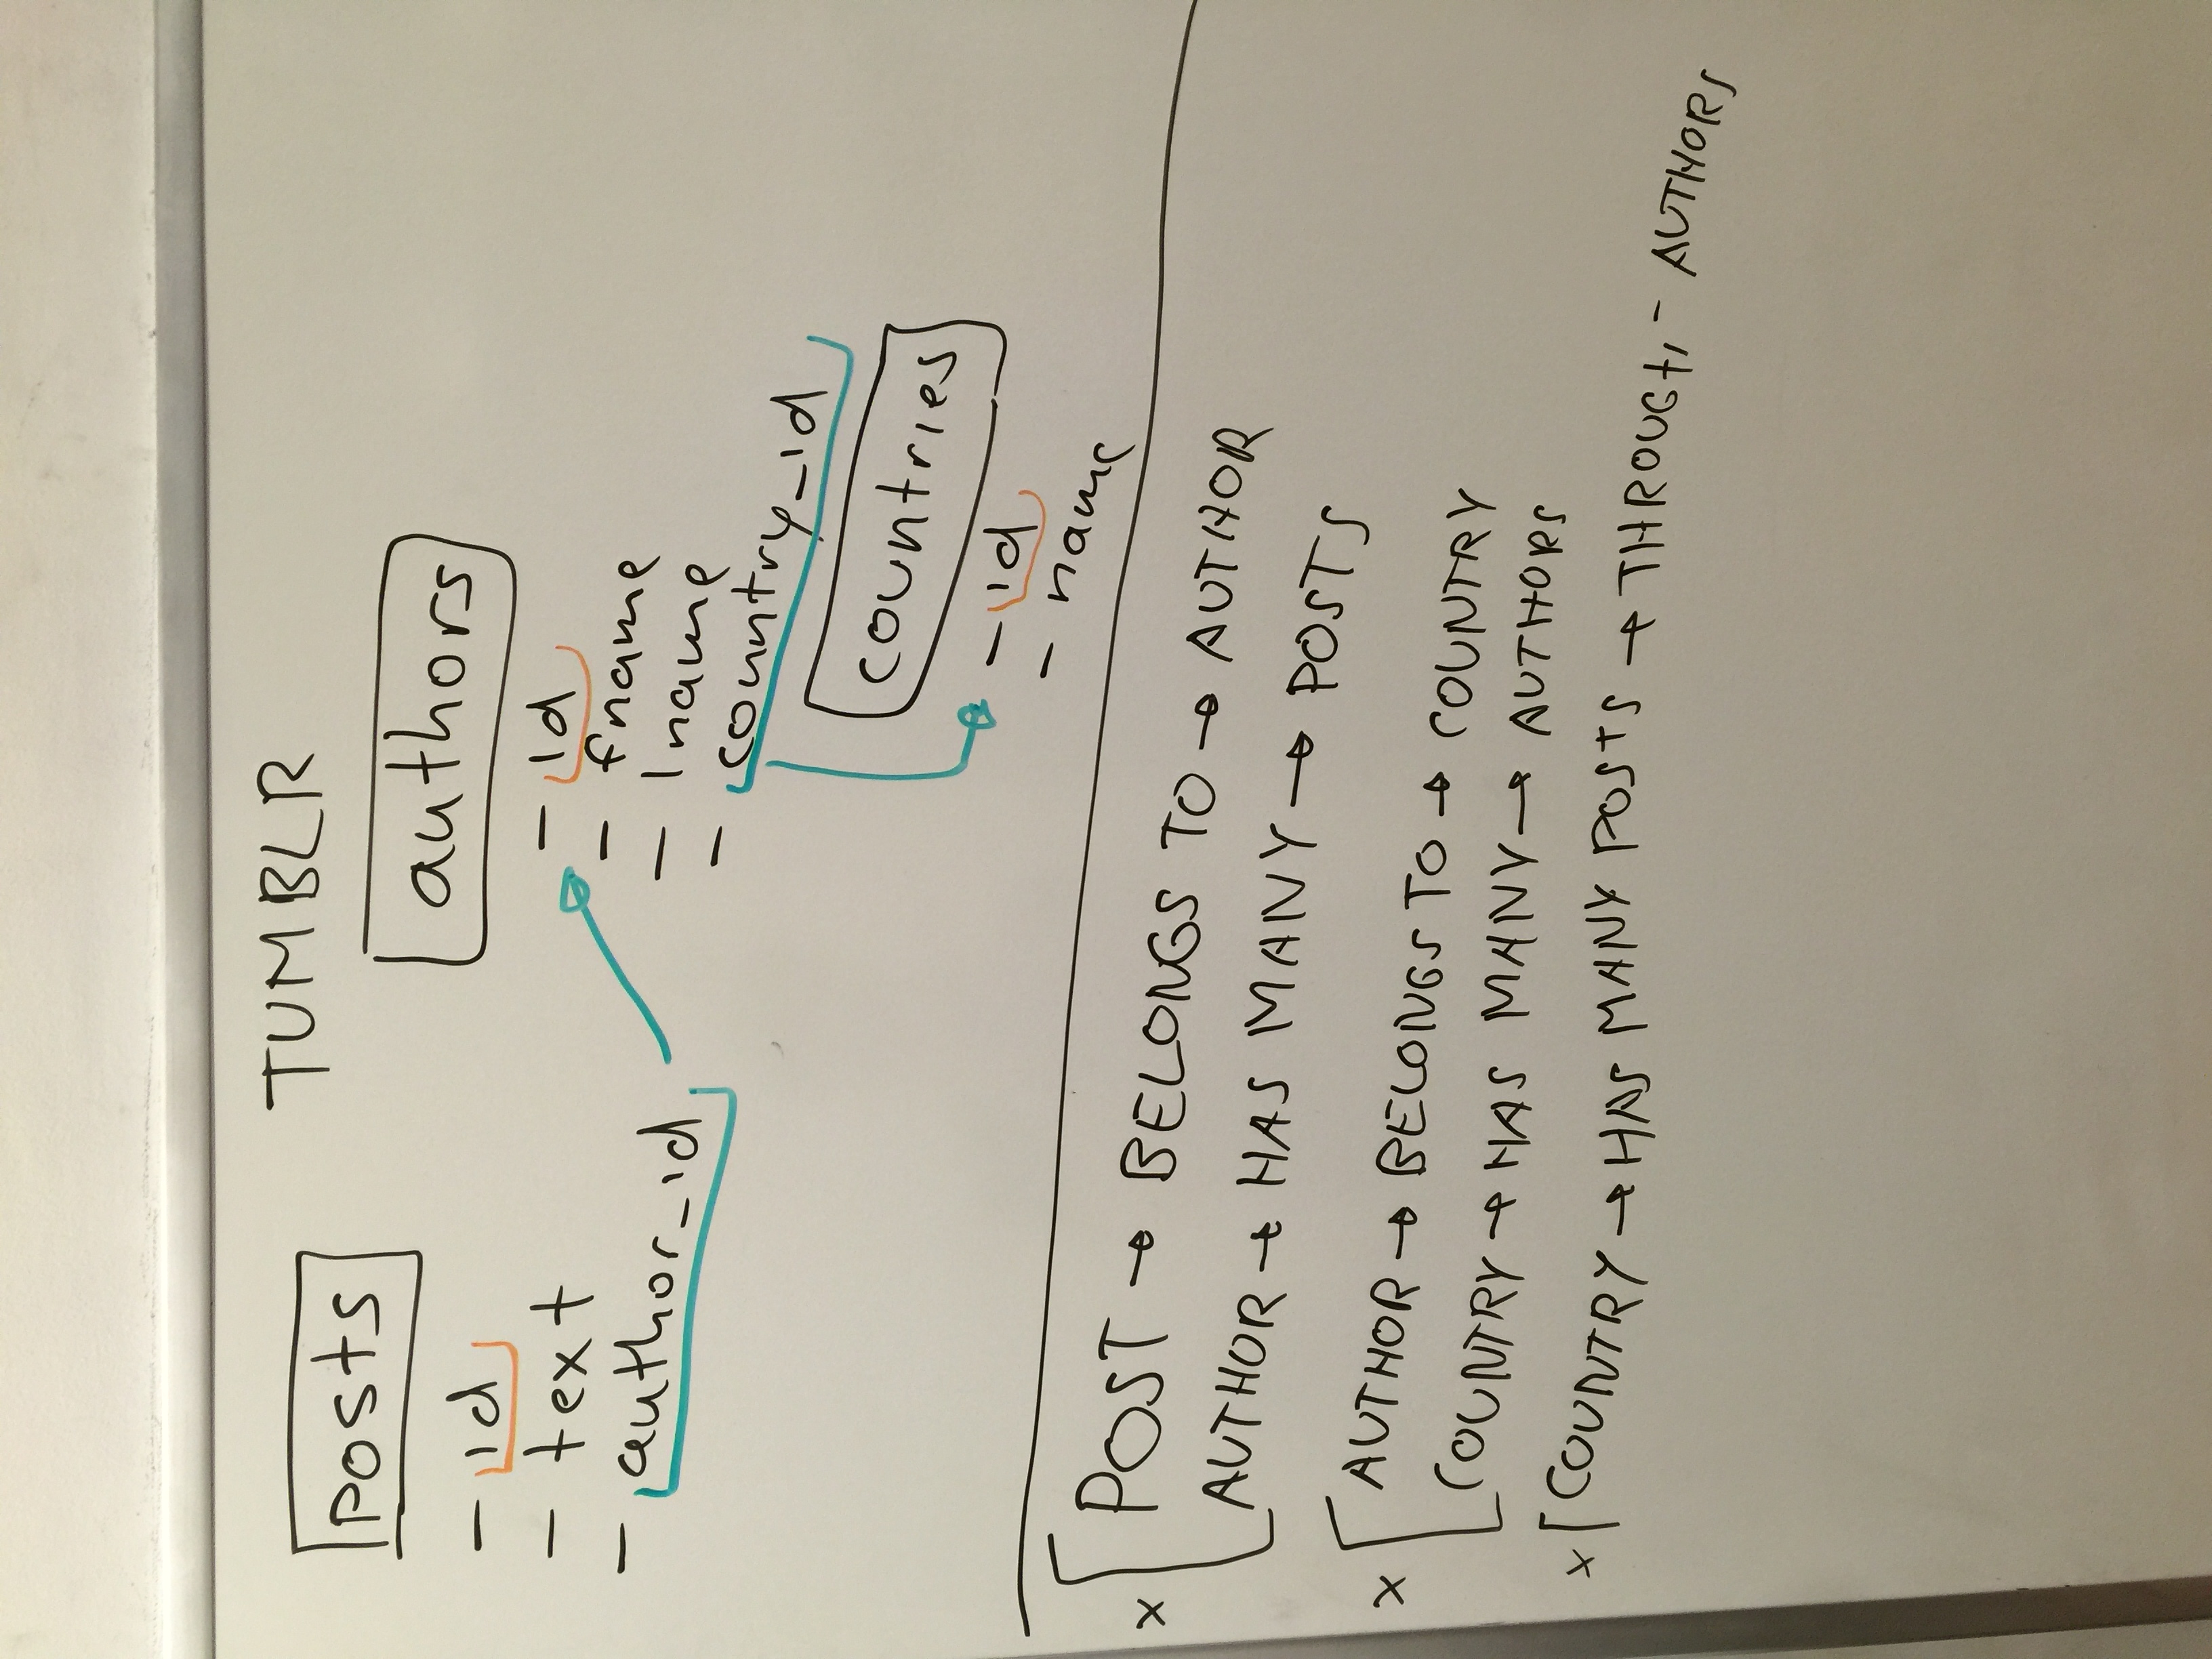 TUMBLR
posts
- id
- text
- author_id
authors
- id
- fname
- lname
- country_id
countries
- id
- name
x [ POST → BELONGS TO → AUTHOR
AUTHOR → HAS MANY → POSTS
x [ AUTHOR → BELONGS TO → COUNTRY
COUNTRY → HAS MANY → AUTHORS
x [ COUNTRY → HAS MANY POSTS → THROUGH - AUTHORS